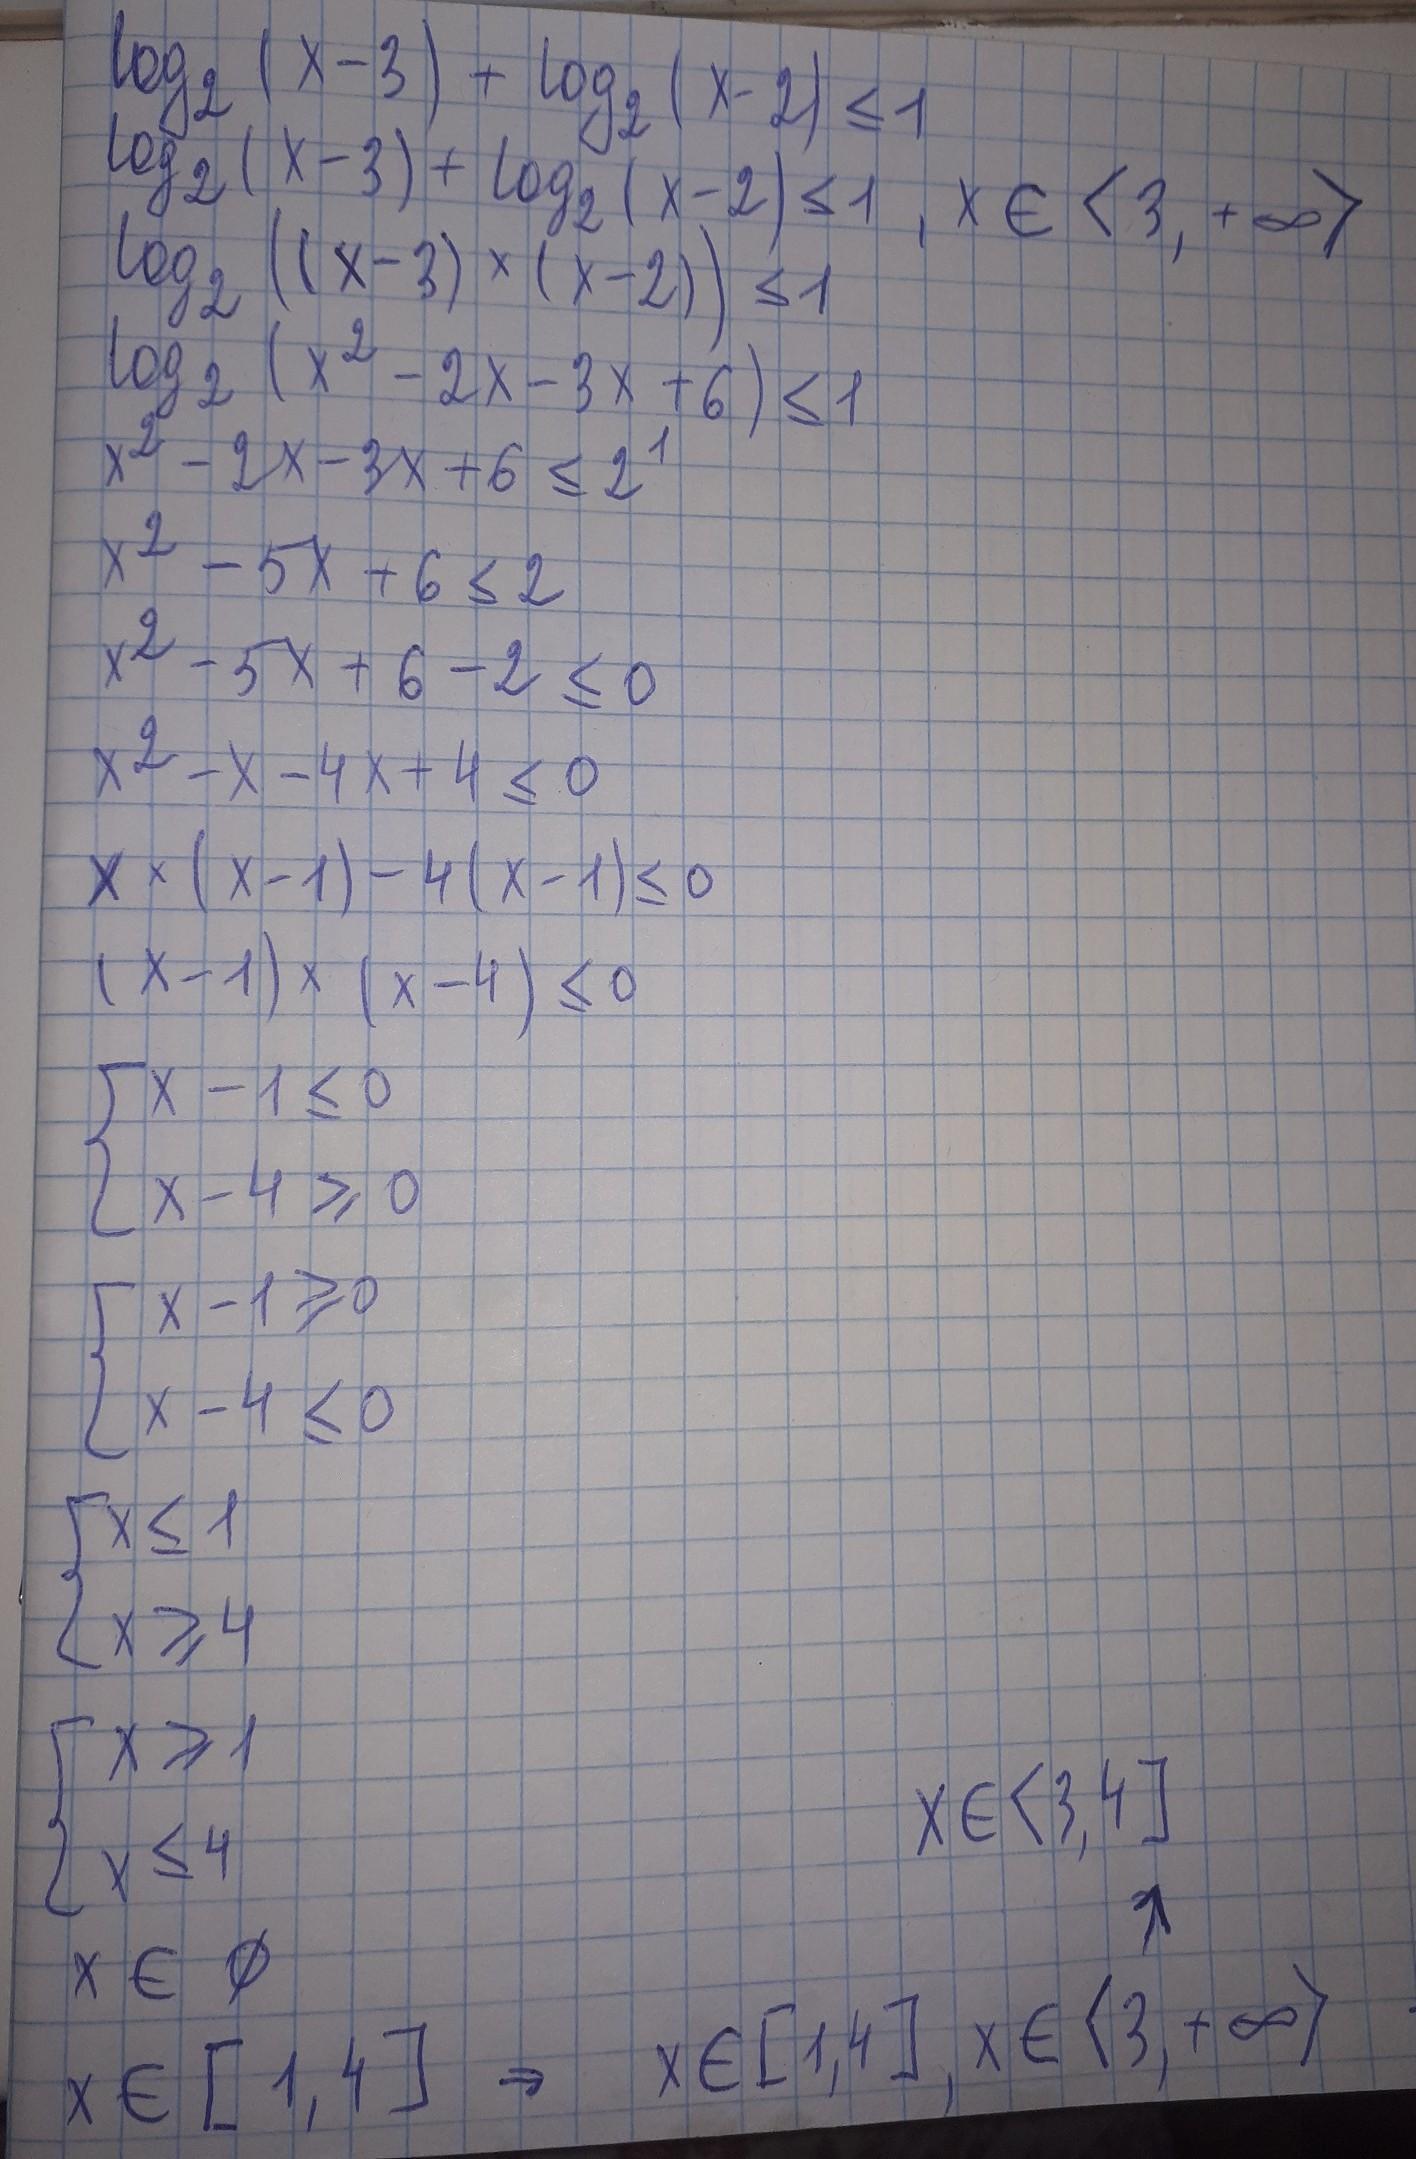 log₂(x-3) + log₂(x-2) ≤ 1
log₂(x-3) + log₂(x-2) ≤ 1, x ∈ ⟨3, +∞⟩
log₂((x-3) × (x-2)) ≤ 1
log₂(x² - 2x - 3x + 6) ≤ 1
x² - 2x - 3x + 6 ≤ 2¹
x² - 5x + 6 ≤ 2
x² - 5x + 6 - 2 ≤ 0
x² - x - 4x + 4 ≤ 0
x × (x-1) - 4(x-1) ≤ 0
(x-1) × (x-4) ≤ 0
{ x - 1 ≤ 0
x - 4 ≥ 0
{ x - 1 ≥ 0
x - 4 ≤ 0
{ x ≤ 1
x ≥ 4
{ x ≥ 1
x ≤ 4
x ∈ ∅
x ∈ [1,4] → x ∈ [1,4], x ∈ ⟨3, +∞⟩
↑
x ∈ ⟨3,4]